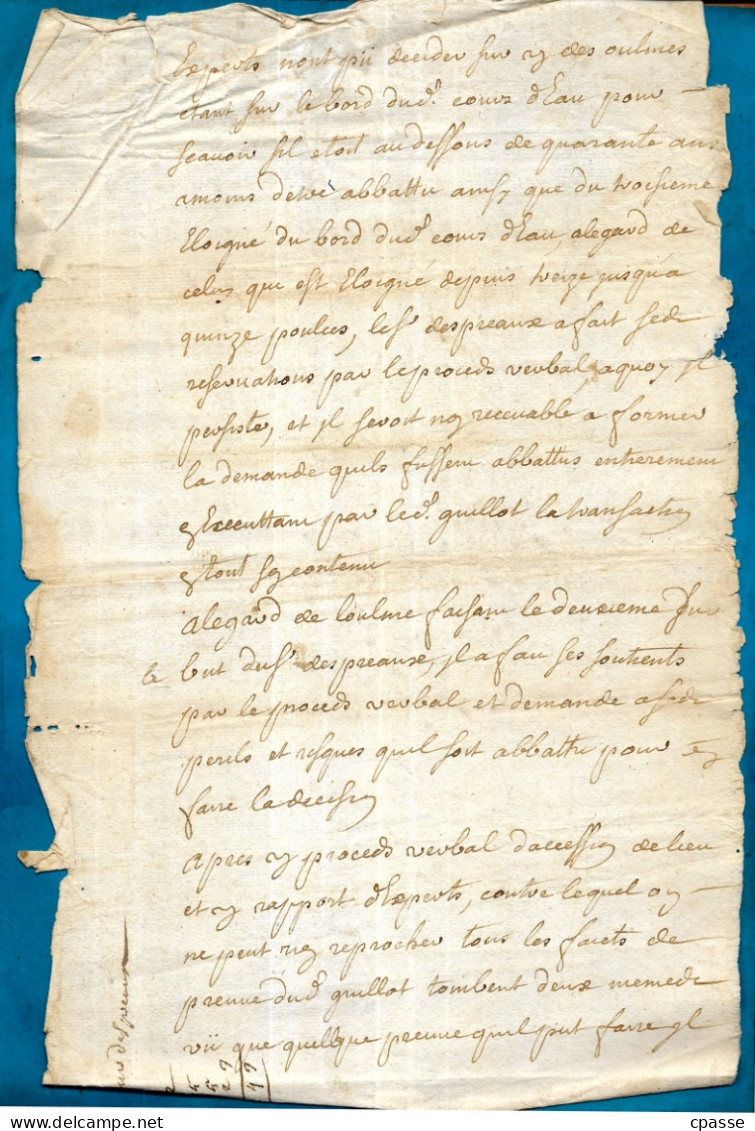 Experts nont pû decider sur y des oulmes
etant sur le bord dud. cours d'Eau pour
scavoir sil etoit au dessous de quarante ans
amoins detre abbattu ainsy que du troisieme
Eloigné du bord dud. cours d'Eau, alegard de
celuy qui est Eloigné depuis treize jusqu'a
quinze poulces, le sr. despreaux a fait sesd.
reservations par le proceds verbal, aquoy jl
persiste, et jl seroit no recevable a former
la demande quils fussent abbattus entierement
Executtant par led. guillot la transactio
tout so contenu
alegard de loulme faisant le deuxieme
le but du sr. despreaux, jl a fait ses soutients
par le proceds verbal et demande a sesd.
perils et risques quil soit abbattu pour e
faire la decisio
apres y proceds verbal d'accessio de lieu
et y rapport d'Experts, contre lequel o
ne peut rie reprocher tous les faicts de
preuve dud. guillot tombent deux memede
vû que quellque preuve quil put faire jl
5
5
29
19
cpasse